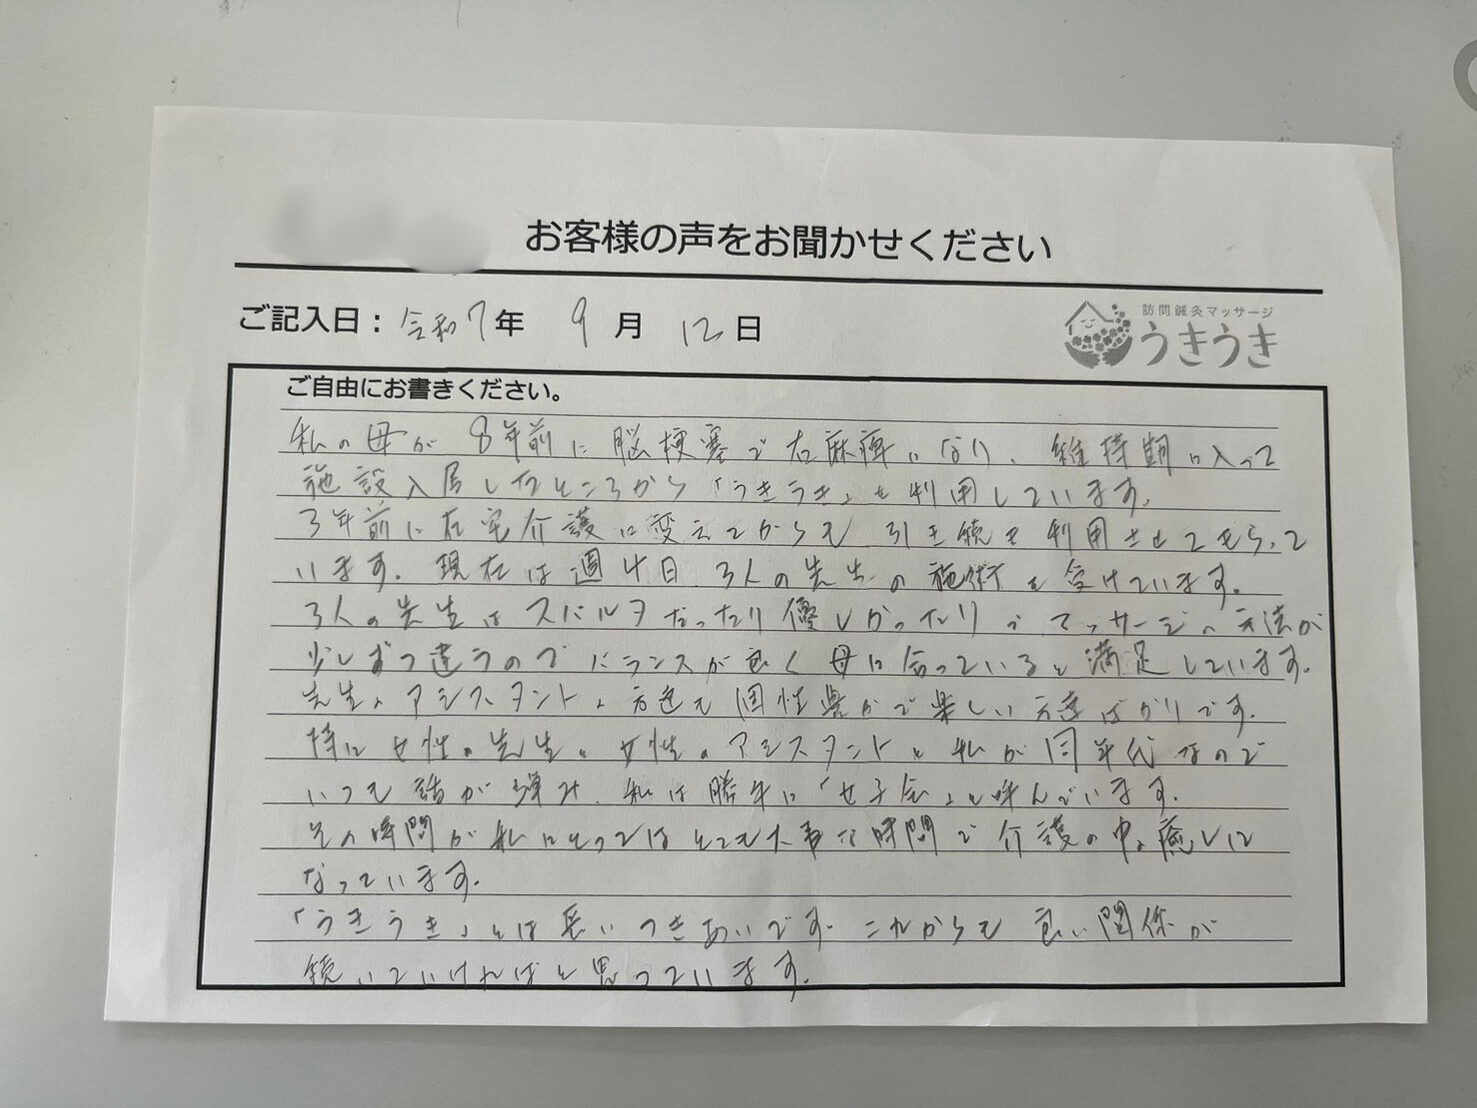 お客様の声をお聞かせください
ご記入日：令和7年 9月 12日
訪問鍼灸マッサージ
うきうき
ご自由にお書きください。
私の母が8年前に脳梗塞で右麻痺になり、維持期に入って
施設入居したところから「うきうき」を利用しています。
3年前に在宅介護に変えてからも引き続き利用させてもらって
います。現在は週4日、3人の先生の施術を受けています。
3人の先生はスパルタだったり優しかったりでマッサージの方法が
少しずつ違うのでバランスが良く母に合っていると満足しています。
先生もアシスタントの方達も個性豊かで楽しい方達ばかりです。
特に女性の先生と女性のアシスタントと私が同年代なので
いつも話が弾み、私は勝手に「女子会」と呼んでいます。
その時間が私にとってはとても大事な時間で介護の中の癒しに
なっています。
「うきうき」とは長いつきあいです。これからも良い関係が
続いていければと思っています。